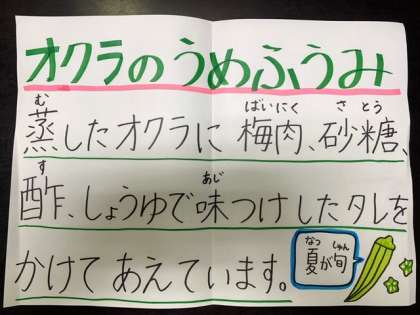 オクラのうめふうみ
む ばいにく さとう
蒸したオクラに梅肉、砂糖、
す あじ
酢、しょうゆで味つけしたタレを
かけてあえています。
なつ しゅん
夏が旬